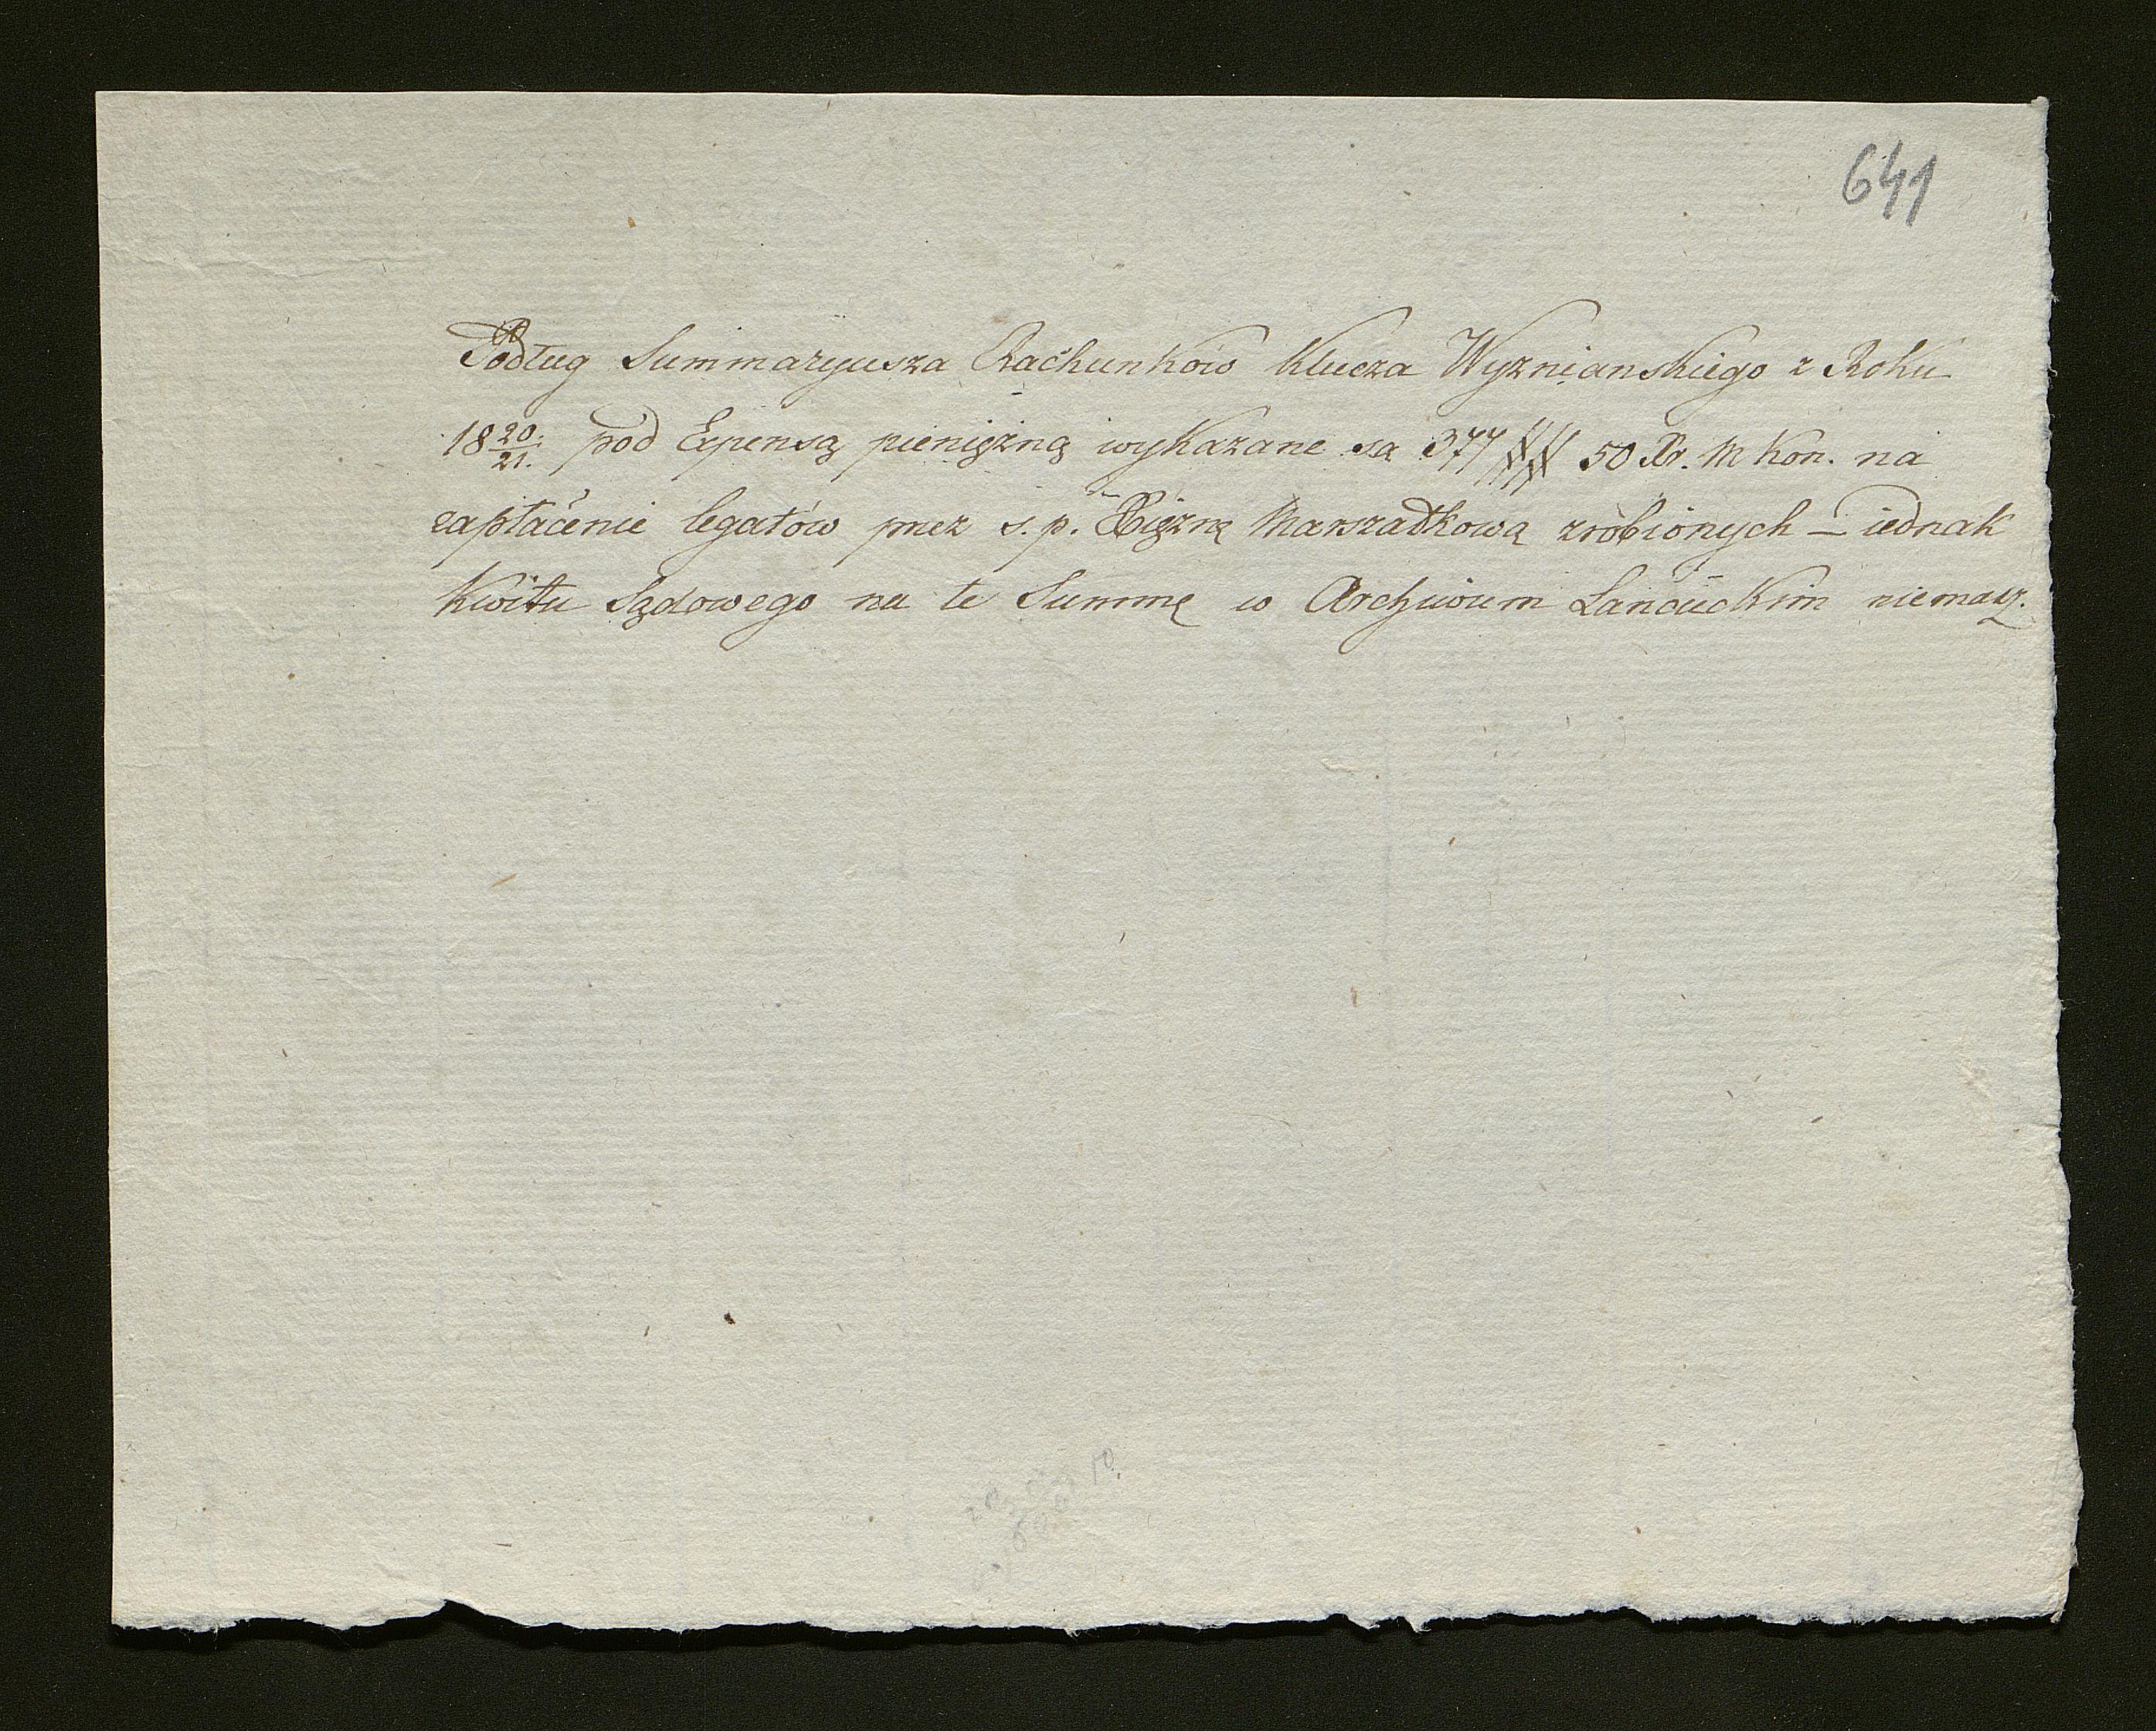 641
Podług Summaryusza Rachunków Klucza Wyznianskiego z Roku
18 20/21. pod Expensą pieniężną wykazane są 377 50 Xr. M Kon. na
zapłacenie legatów przez s. p. Xiężnę Marszałkową zrobionych – iednak
Kwitu Sądowego na te Summę w Archiwum Łancuckim niemasz.